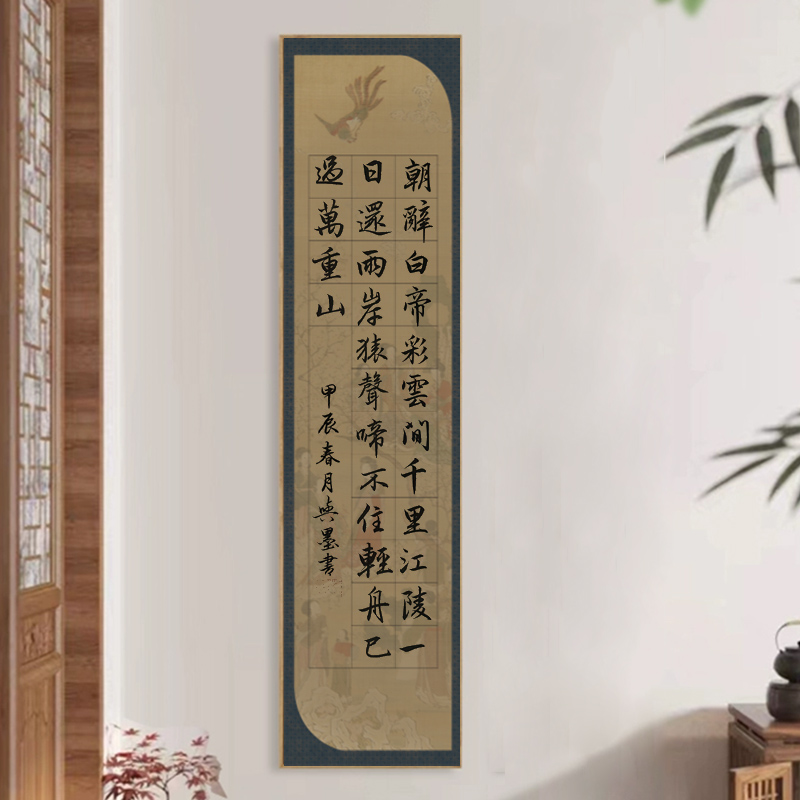 朝辭白帝彩雲間千里江陵一
日還兩岸猿聲啼不住輕舟已
過萬重山
甲辰春月與墨書